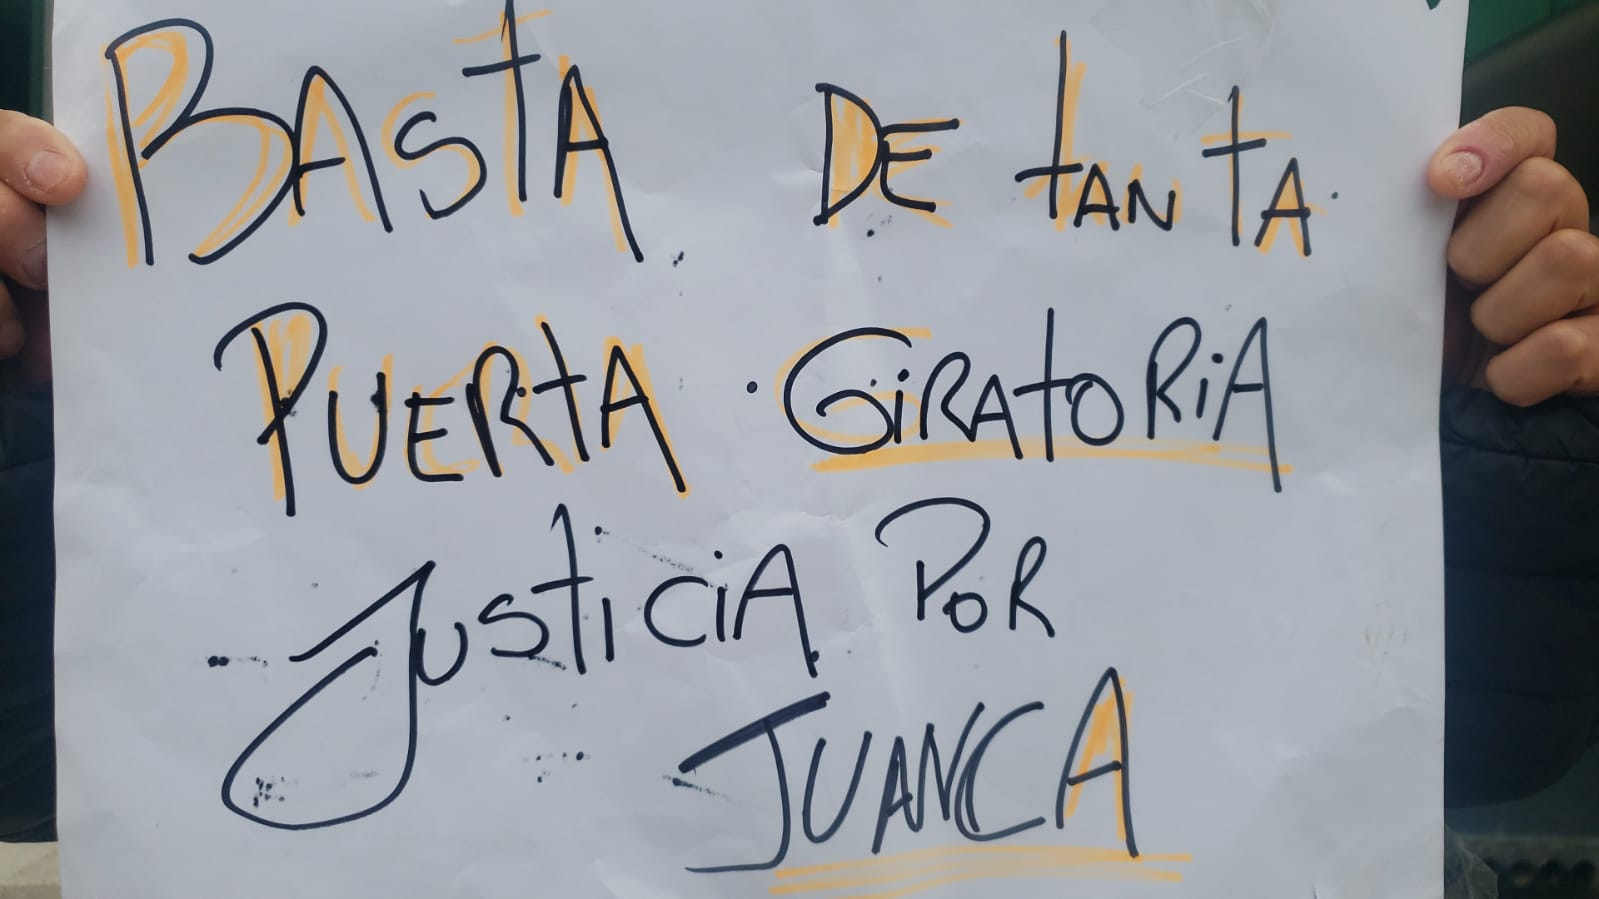 BASTA DE tANTA
PUERtA GiRAtORiA
JUSTICiA POR
JUANCA